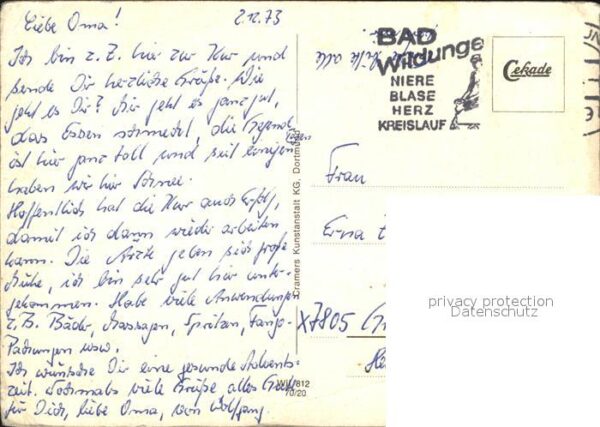 Liebe Oma! 2.12.73
Ich bin z. Z. hier zur Kur und
sende Dir herzliche Grüße. Wie
geht es Dir? Mir geht es ganz gut,
das Essen schmeckt, die Gegend
ist hier ganz toll und seit einigen Tagen
haben wir hier Schnee.
Hoffentlich hat die Kur auch Erfolg,
damit ich dann wieder arbeiten
kann. Die Ärzte geben sich große
Mühe, ich bin sehr gut hier unter-
gekommen. Habe viele Anwendungen
z.B. Bäder, Massagen, Spritzen, Fango-
Packungen usw.
Ich wünsche Dir eine gesunde Advents-
zeit. Nochmals viele Grüße alles Gute
für Dich, liebe Oma, von Wolfgang.
Cramers Kunstanstalt KG, Dortmund
Wil/812
70/20
BAD
Wildunge
NIERE
BLASE
HERZ
KREISLAUF
Cekade
alle
Frau
Erna
X7805
privacy protection
Datenschutz